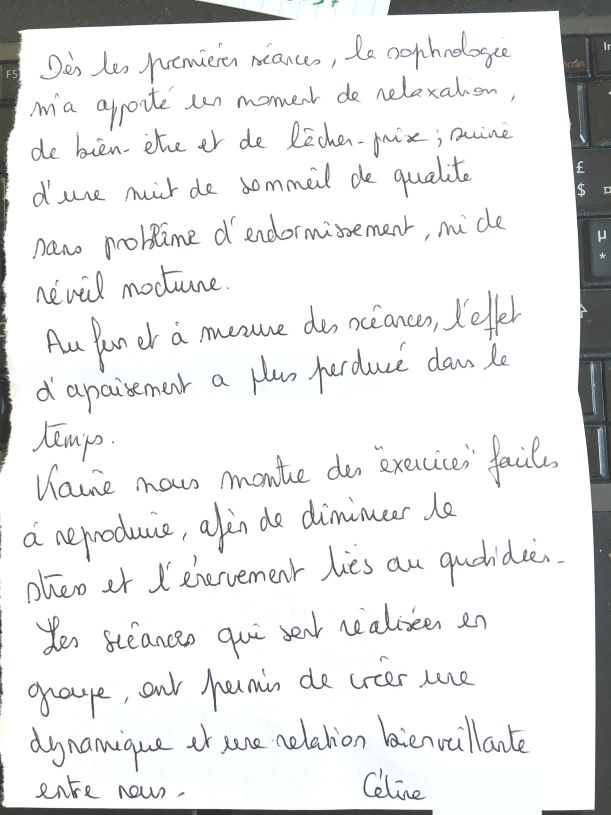 Dès les premières séances, la sophrologie
m'a apporté un moment de relaxation,
de bien-être et de lâcher-prise ; suivie
d'une nuit de sommeil de qualité
sans problème d'endormissement, ni de
réveil nocturne.
Au fur et à mesure des séances, l'effet
d'apaisement a plus perduré dans le
temps.
nous montre des "exercices" faciles
à reproduire, afin de diminuer le
stress et l'énervement liés au quotidien.
Les séances qui sont réalisées en
groupe, ont permis de créer une
dynamique et une relation bienveillante
entre nous. Céline
F5
écran
£
$ ¤
µ
*